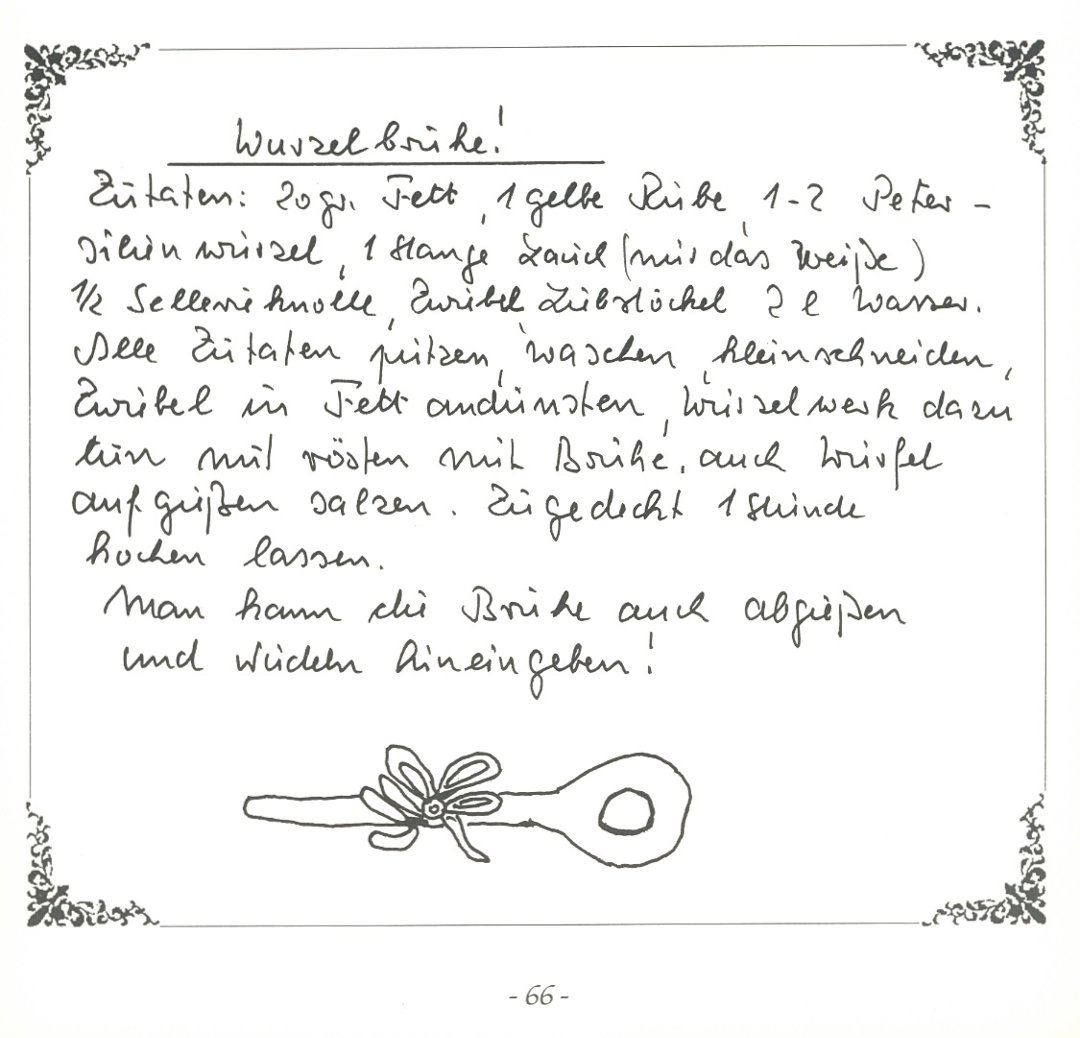 Wurzelbrühe!
Zutaten: 20 gr. Fett, 1 gelbe Rübe, 1-2 Peter-
silienwurzel, 1 Stange Lauch (nur das Weiße)
1/2 Sellerieknolle, Zwiebel, Liebstöckel 2 l Wasser.
Alle Zutaten putzen, waschen, kleinschneiden,
Zwiebel in Fett andünsten, Wurzelwerk dazu
tun mit rösten mit Brühe, auch Würfel
aufgießen salzen. Zugedeckt 1 Stunde
kochen lassen.
Man kann die Brühe auch abgießen
und Nudeln hineingeben!
- 66 -